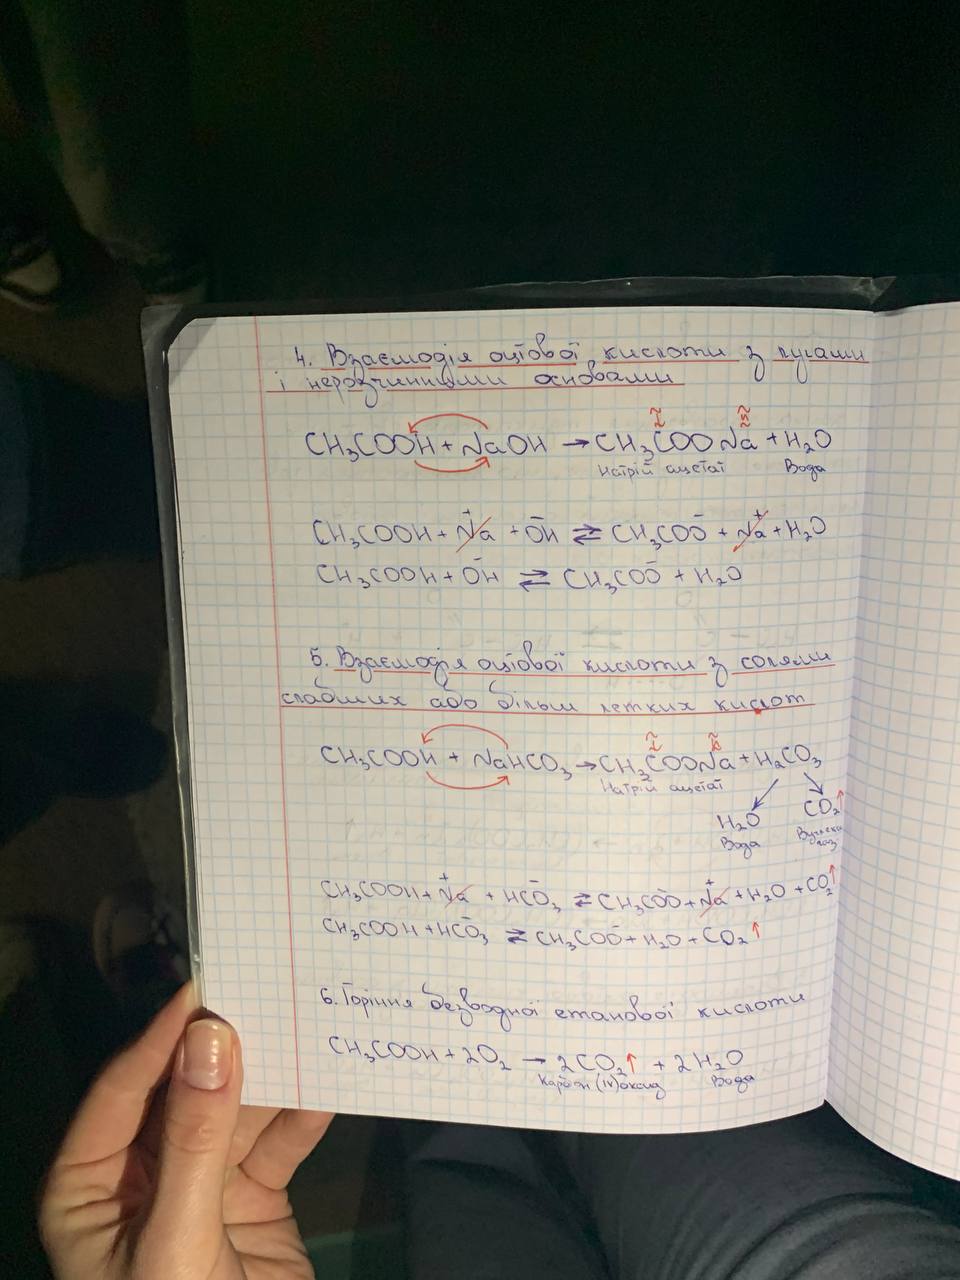 4. Взаємодія оцтової кислоти з лугами
і нерозчинними основами
I II
CH₃COOH + NaOH → CH₃COONa + H₂O
Натрій ацетат Вода
CH₃COOH + Na⁺ + OH⁻ ⇄ CH₃COO⁻ + Na⁺ + H₂O
CH₃COOH + OH⁻ ⇄ CH₃COO⁻ + H₂O
5. Взаємодія оцтової кислоти з солями
слабших або більш летких кислот
CH₃COOH + NaHCO₃ → CH₃COONa + H₂CO₃
Натрій ацетат
H₂O CO₂↑
Вода Вуглекс. газ
CH₃COOH + Na⁺ + HCO₃⁻ ⇄ CH₃COO⁻ + Na⁺ + H₂O + CO₂↑
CH₃COOH + HCO₃⁻ ⇄ CH₃COO⁻ + H₂O + CO₂↑
6. Горіння безводної етанової кислоти
CH₃COOH + 2O₂ → 2CO₂↑ + 2H₂O
Карбон (IV) оксид Вода